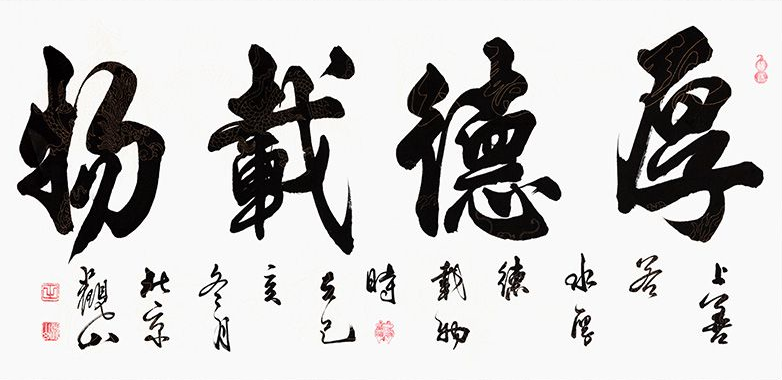 厚德載物
上善若水厚德載物時在己亥冬月北京觀山